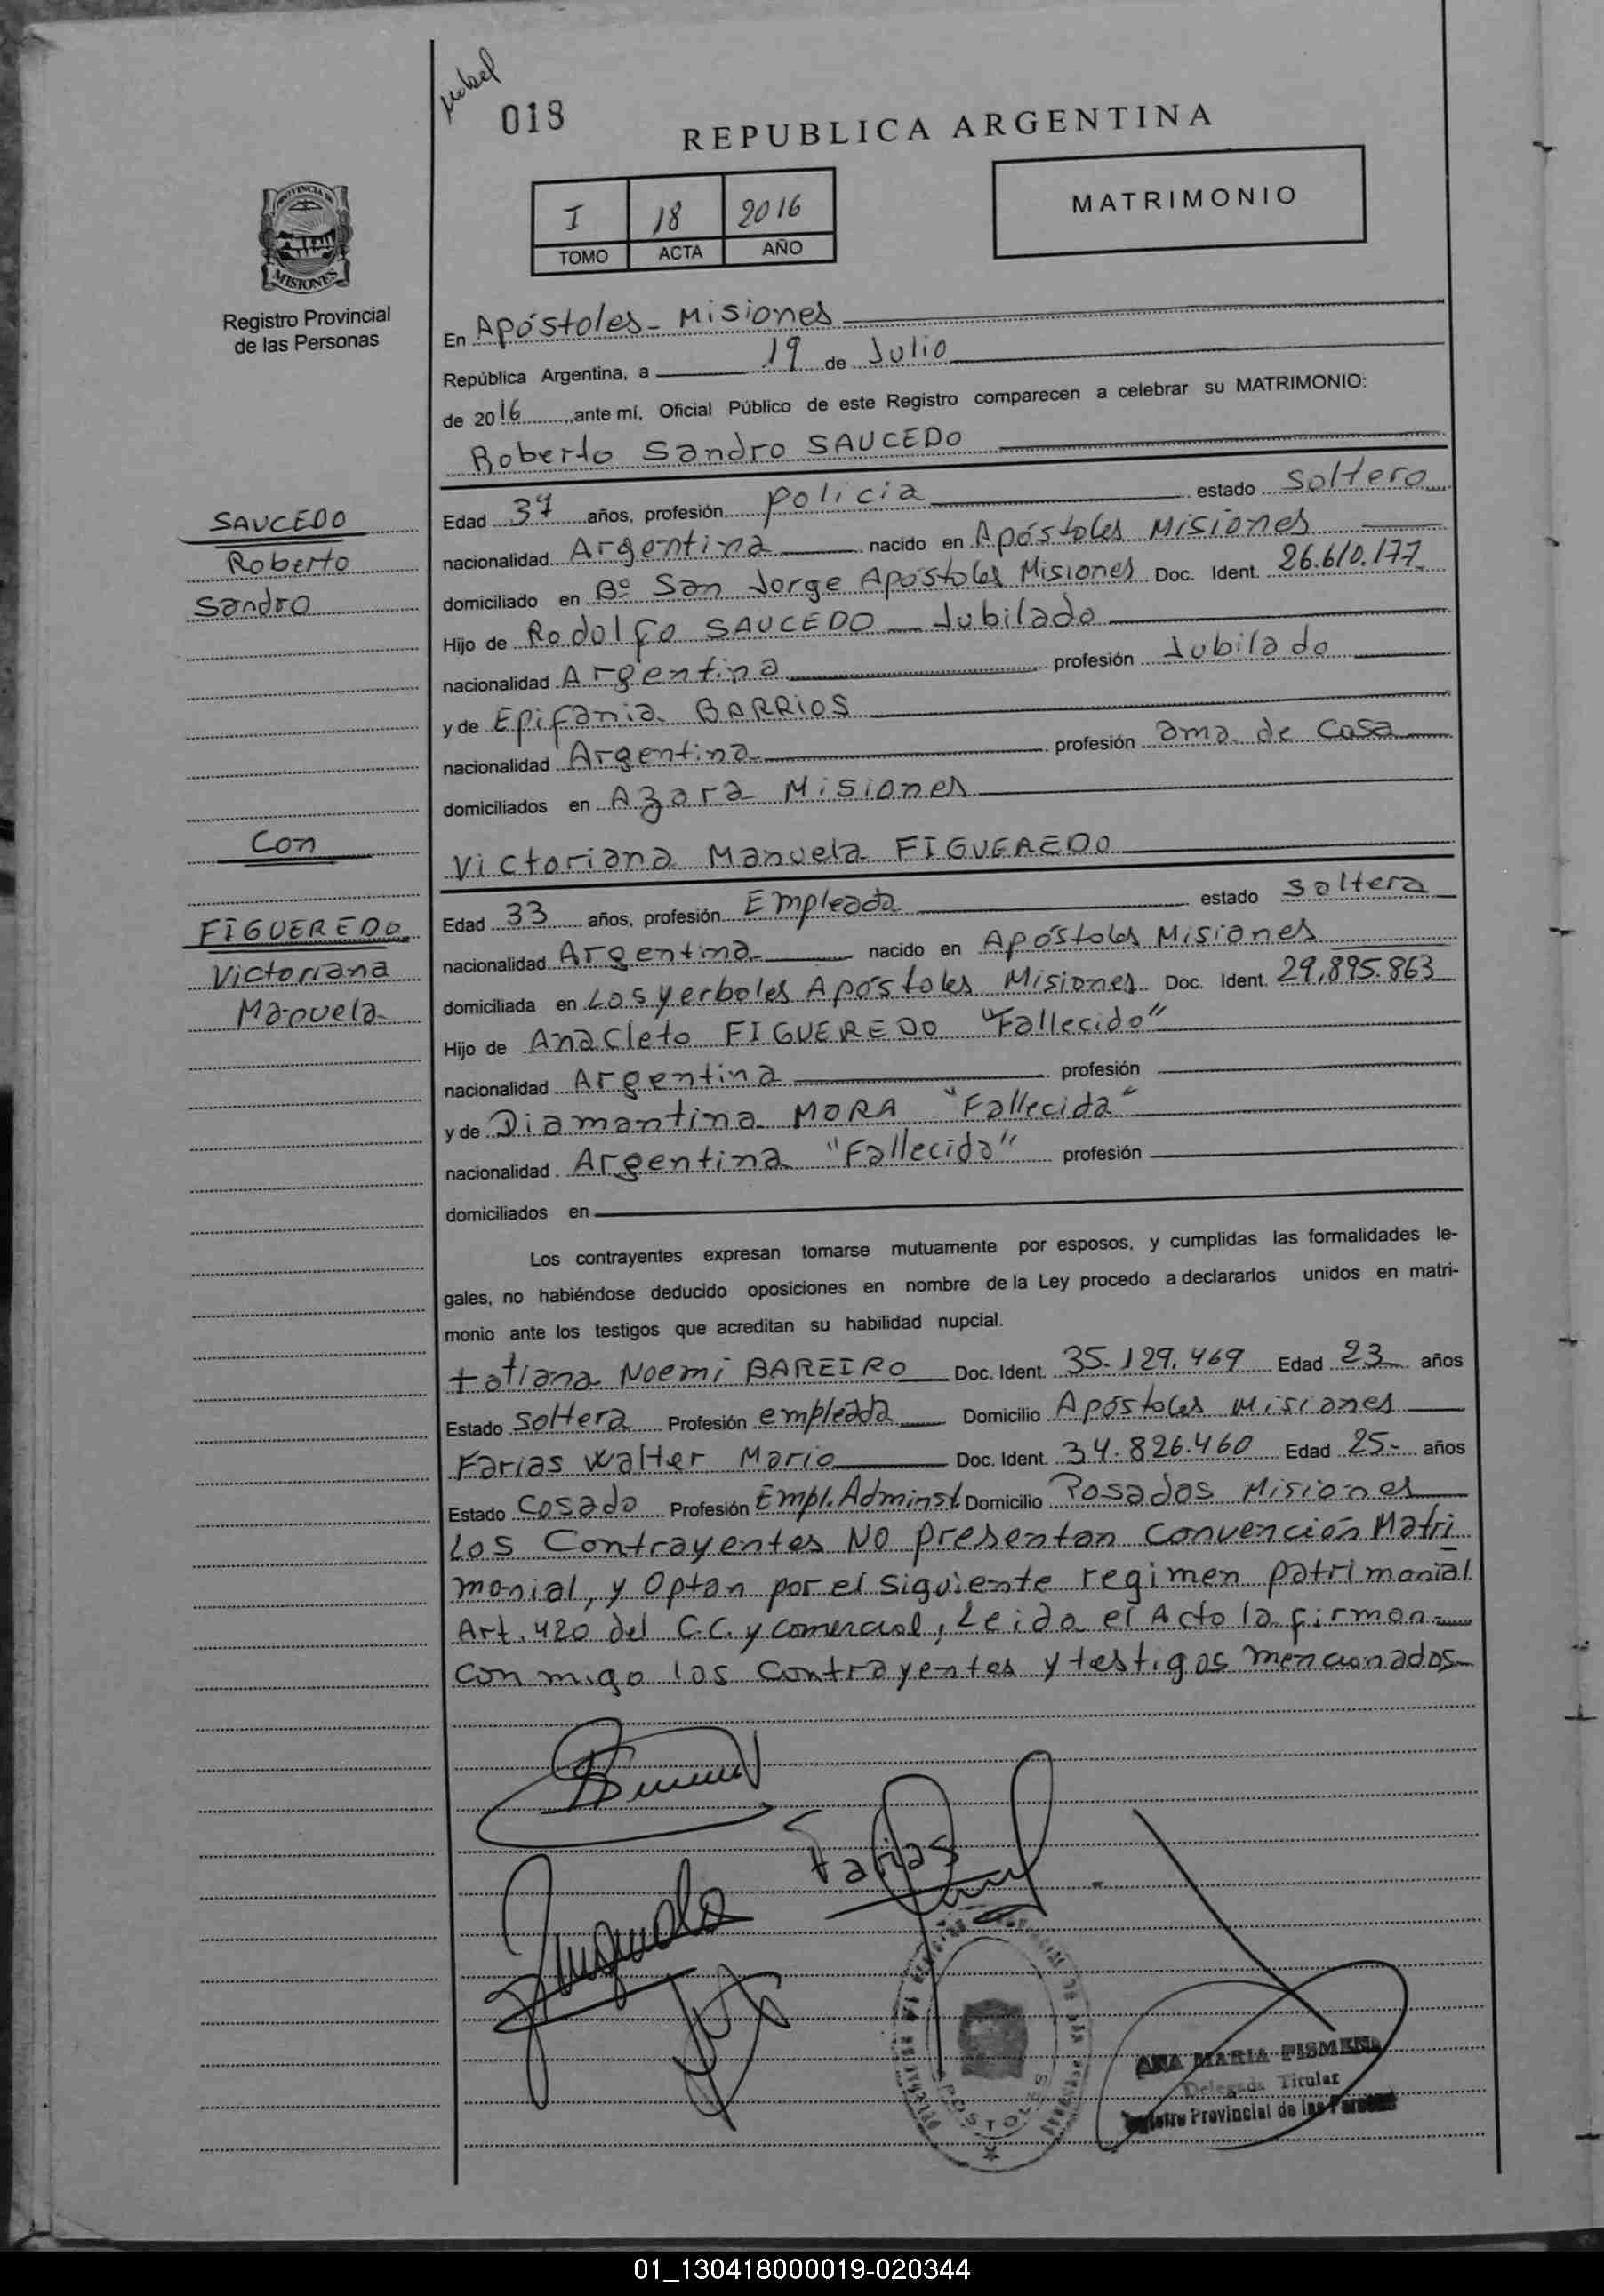 018
REPUBLICA ARGENTINA
I 18 2016
TOMO ACTA AÑO
MATRIMONIO
PROVINCIA DE
MISIONES
Registro Provincial
de las Personas
En Apóstoles - Misiones
República Argentina, a 19 de Julio
de 2016, ante mí, Oficial Público de este Registro comparecen a celebrar su MATRIMONIO:
Roberto Sandro SAUCEDO
SAUCEDO
Roberto
Sandro
Edad 37 años, profesión policia estado soltero
nacionalidad Argentina nacido en Apóstoles Misiones
domiciliado en Bº San Jorge Apóstoles Misiones Doc. Ident. 26.610.177
Hijo de Rodolfo SAUCEDO Jubilado
nacionalidad Argentina profesión Jubilado
y de Epifania BARRIOS
nacionalidad Argentina profesión ama de casa
domiciliados en Azara Misiones
Con
Victoriana Manuela FIGUEREDO
FIGUEREDO
Victoriana
Manuela
Edad 33 años, profesión Empleada estado soltera
nacionalidad Argentina nacido en Apóstoles Misiones
domiciliada en Los yerbales Apóstoles Misiones Doc. Ident. 29.895.863
Hijo de Anacleto FIGUEREDO "Fallecido"
nacionalidad Argentina profesión
y de Diamantina MORA "Fallecida"
nacionalidad Argentina "Fallecida" profesión
domiciliados en
Los contrayentes expresan tomarse mutuamente por esposos, y cumplidas las formalidades le-
gales, no habiéndose deducido oposiciones en nombre de la Ley procedo a declararlos unidos en matri-
monio ante los testigos que acreditan su habilidad nupcial.
tatiana Noemi BAREIRO Doc. Ident. 35.129.469 Edad 23 años
Estado soltera Profesión empleada Domicilio Apóstoles Misiones
Farias Walter Mario Doc. Ident. 34.826.460 Edad 25- años
Estado Casado Profesión Empl. Adminst. Domicilio Posadas Misiones
Los Contrayentes NO presentan convención Matri
monial, y Optan por el siguiente regimen patrimonial
Art. 420 del C.C. y comercial, Leida el Acto la firman
con migo los contrayentes y testigos mencionados
Farias
ANA MARIA PISMENA
Delegada Titular
Registro Provincial de las Personas
01_130418000019-020344